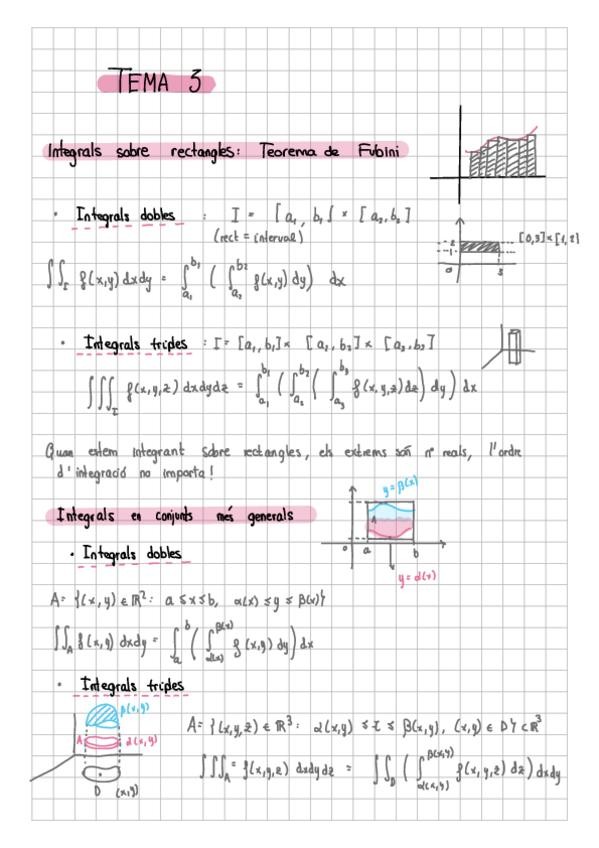 TEMA 3
Integrals sobre rectangles: Teorema de Fubini
• Integrals dobles : I = [a₁, b₁] × [a₂, b₂]
(rect = interval)
[0,3]×[1,2]
2
1
0 3
∬_I f(x,y) dxdy = ∫_{a₁}^{b₁} ( ∫_{a₂}^{b₂} f(x,y) dy) dx
• Integrals triples : I = [a₁, b₁] × [a₂, b₂] × [a₃, b₃]
∭_I f(x,y,z) dxdydz = ∫_{a₁}^{b₁} ( ∫_{a₂}^{b₂} ( ∫_{a₃}^{b₃} f(x,y,z) dz) dy) dx
Quan estem integrant sobre rectangles, els extrems són nº reals, l'ordre
d'integració no importa!
y = β(x)
Integrals en conjunts més generals
A
0 a b
y = α(x)
• Integrals dobles
A = {(x,y) ∈ ℝ²: a ≤ x ≤ b, α(x) ≤ y ≤ β(x)}
∬_A f(x,y) dxdy = ∫_a^b ( ∫_{α(x)}^{β(x)} f(x,y) dy) dx
• Integrals triples
β(x,y)
A α(x,y)
D (x,y)
A = {(x,y,z) ∈ ℝ³: α(x,y) ≤ z ≤ β(x,y), (x,y) ∈ D} ⊂ ℝ³
∭_A = f(x,y,z) dxdydz = ∬_D ( ∫_{α(x,y)}^{β(x,y)} f(x,y,z) dz) dxdy